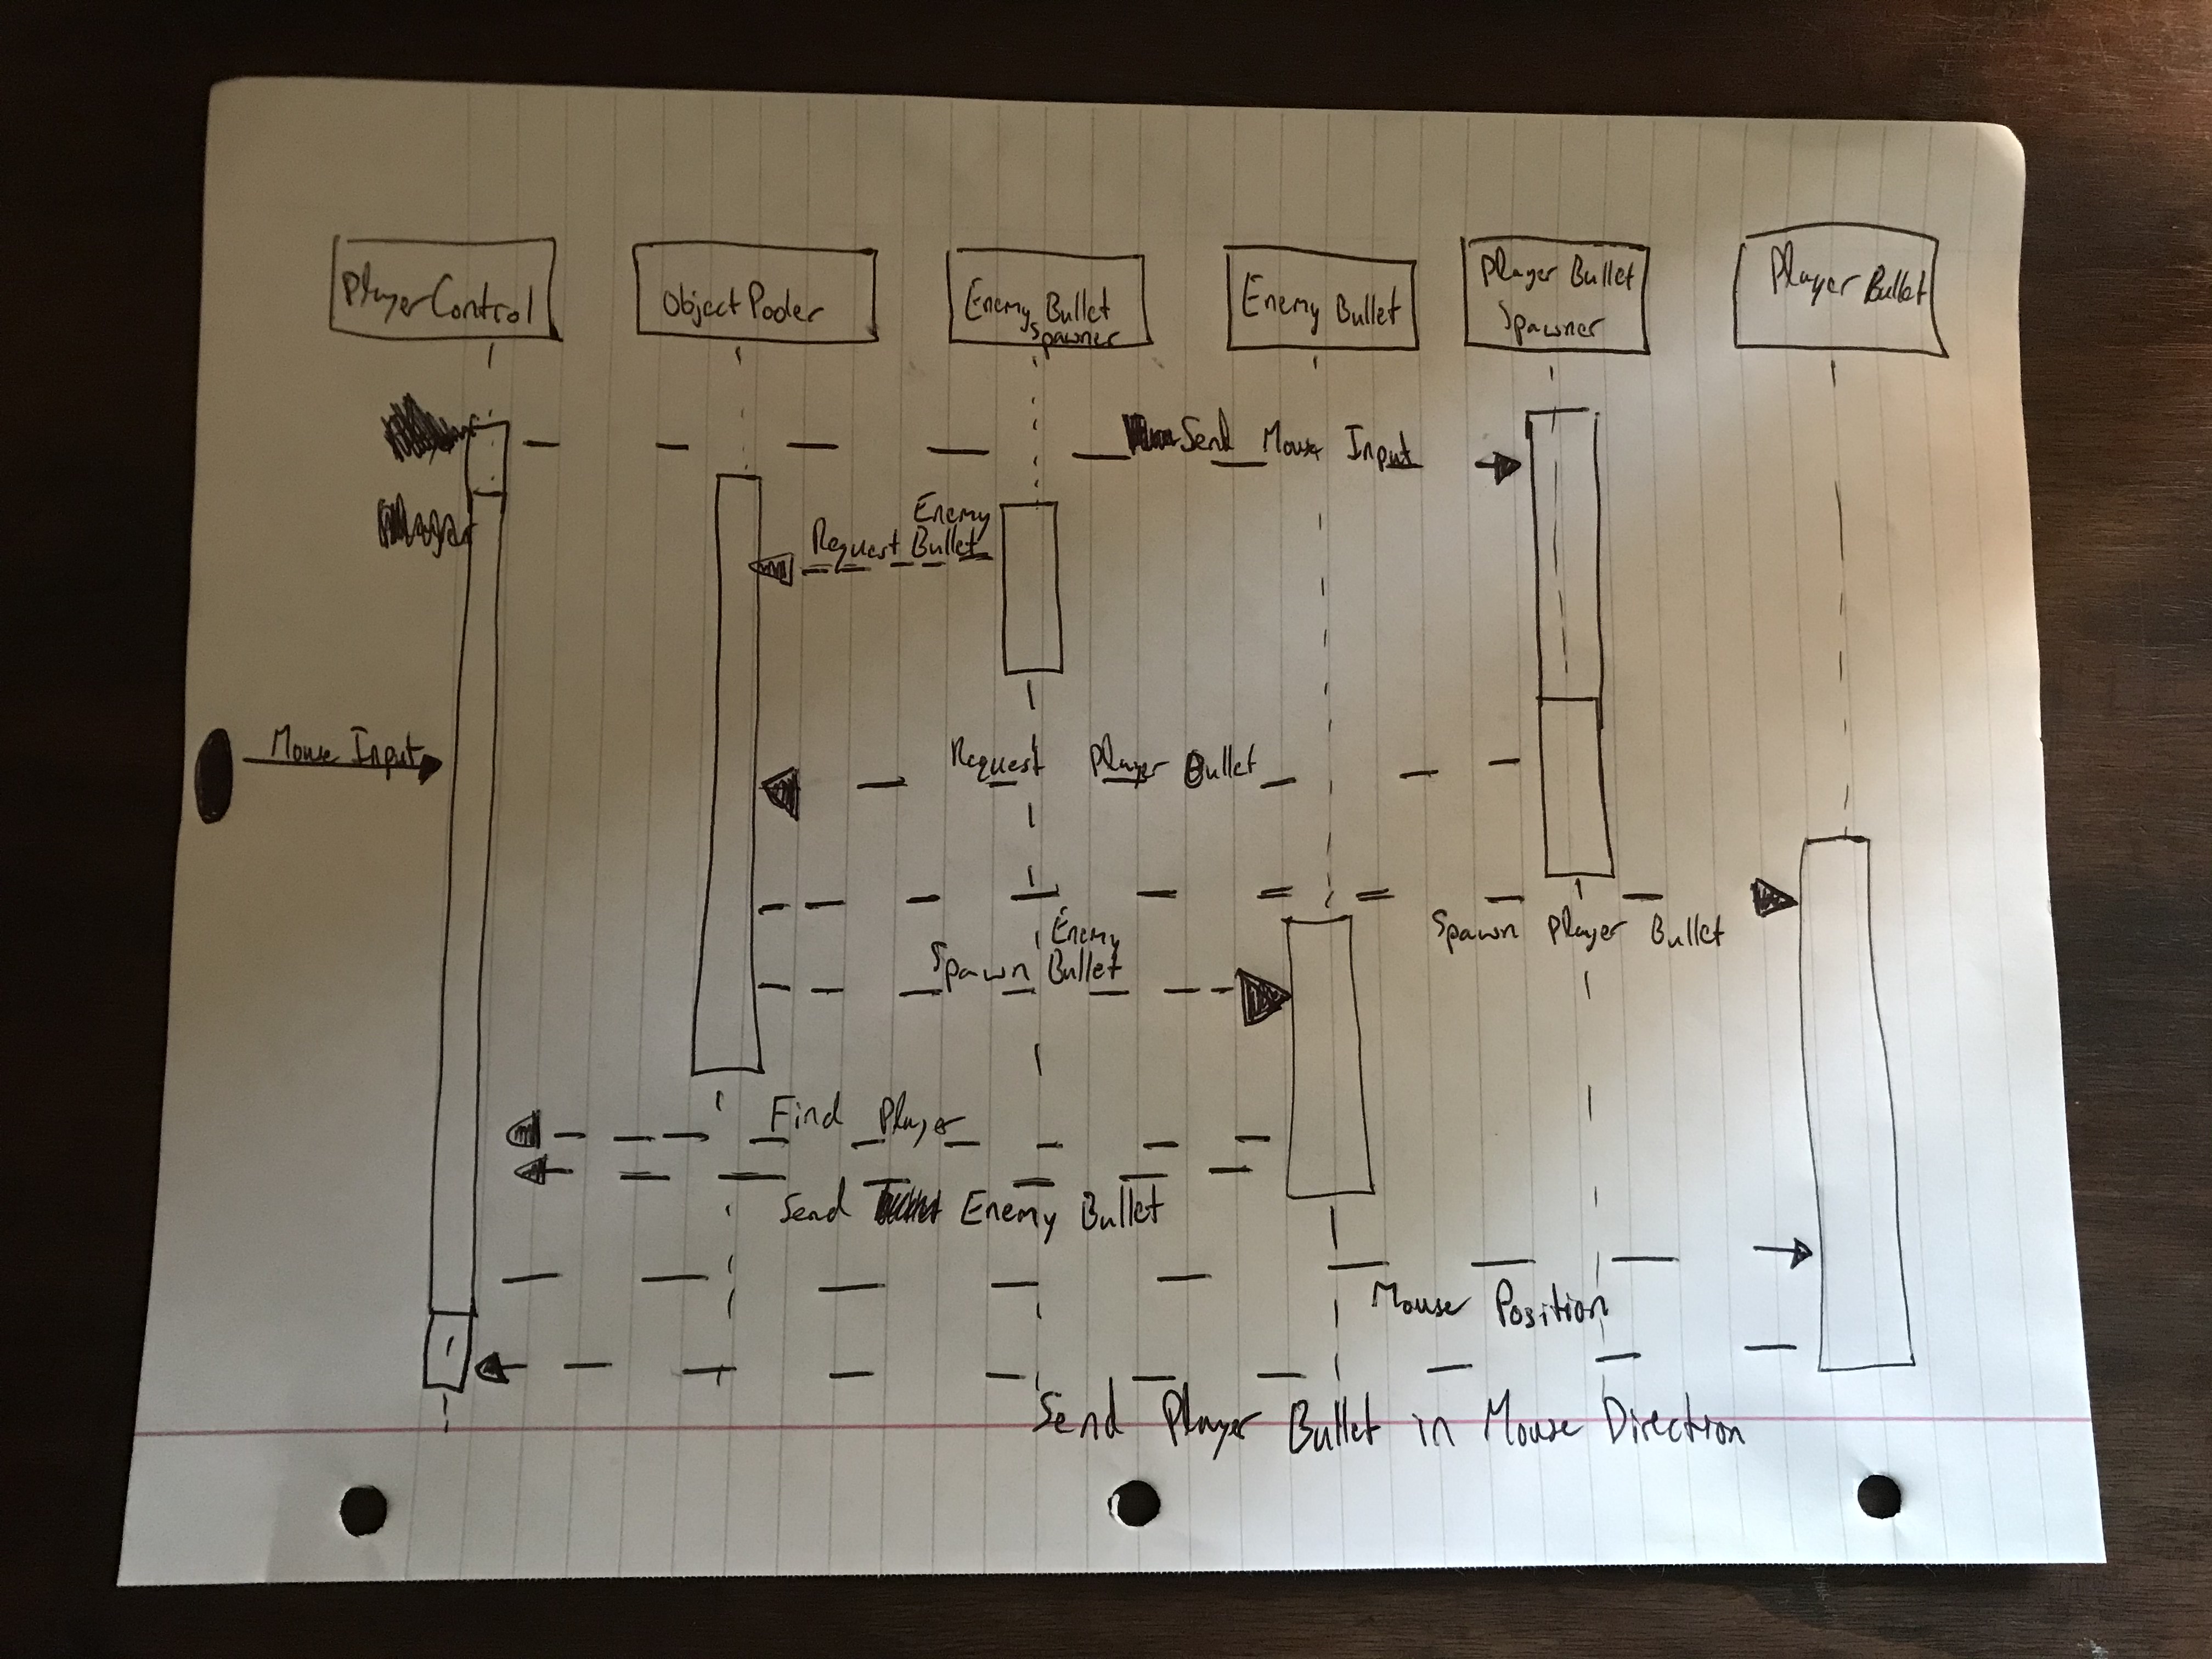 PlayerControl
ObjectPooler
Enemy Bullet
Spawner
Enemy Bullet
Player Bullet
Spawner
Player Bullet
Send Mouse Input
Player
Enemy
Request Bullet
Mouse Input
Request Player Bullet
Spawn Player Bullet
Enemy
Spawn Bullet
Find Player
Send Enemy Bullet
Mouse Position
Send Player Bullet in Mouse Direction